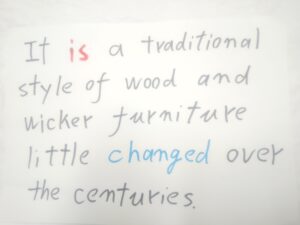 It is a traditional
style of wood and
wicker furniture
little changed over
the centuries.